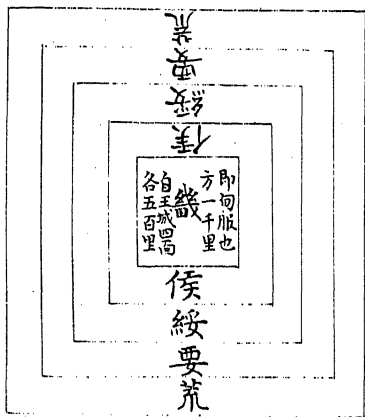 荒
要
綏
侯
即甸服也
方一千里
畿
自王城四面
各五百里
侯
綏
要
荒